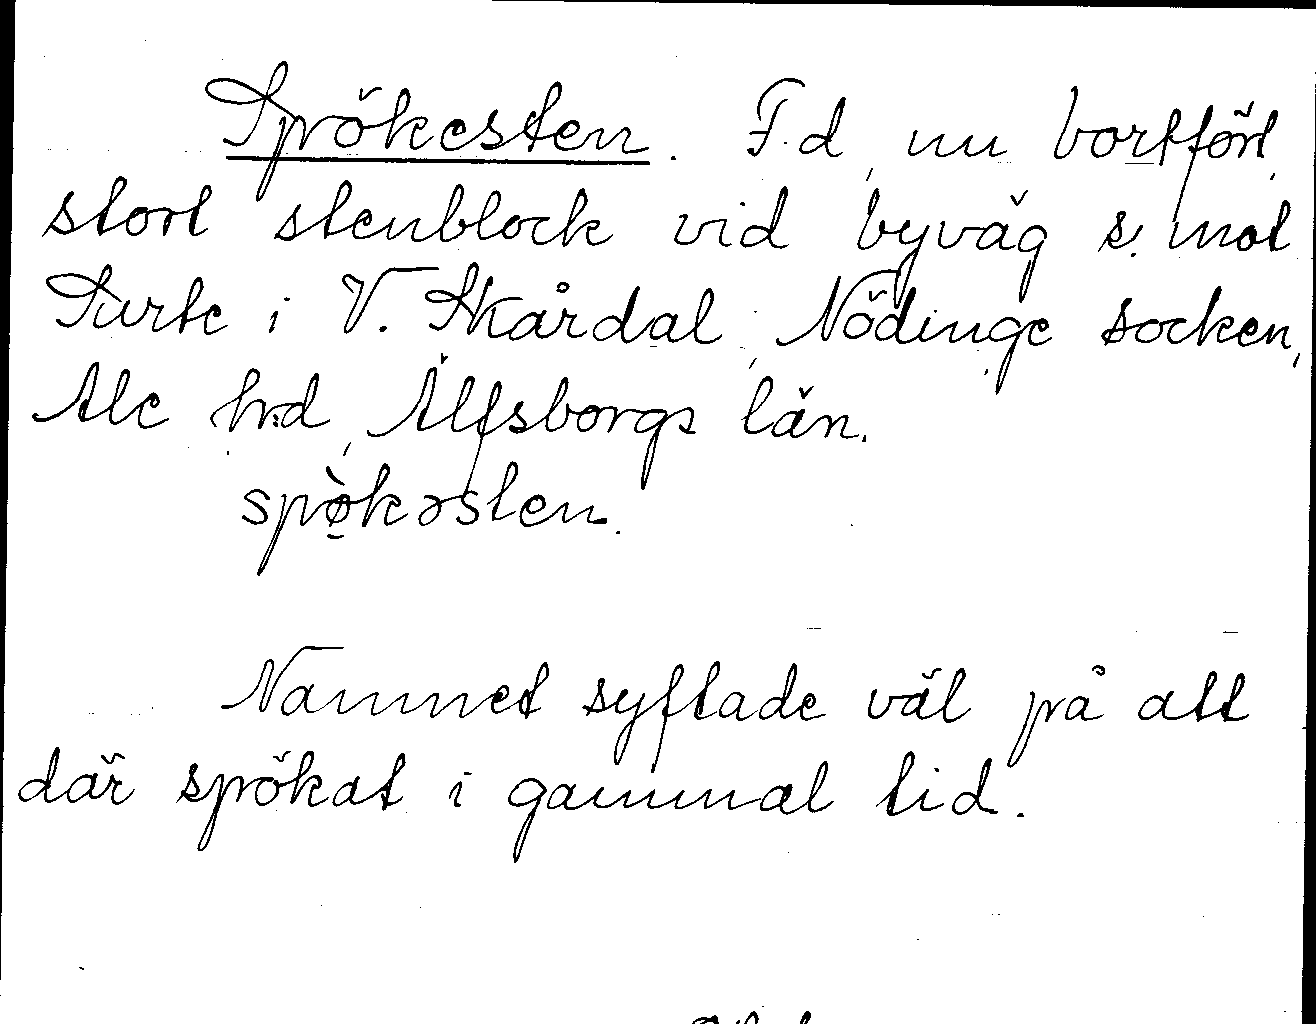 Spökesten. F.d, nu bortfört,
stort stenblock vid byväg s. mot
Surte i V. Skårdal, Nödinge socken,
Ale hrd, Älfsborgs län.
spø̀kəsten.
Namnet syftade väl på att
där spökat i gammal tid.